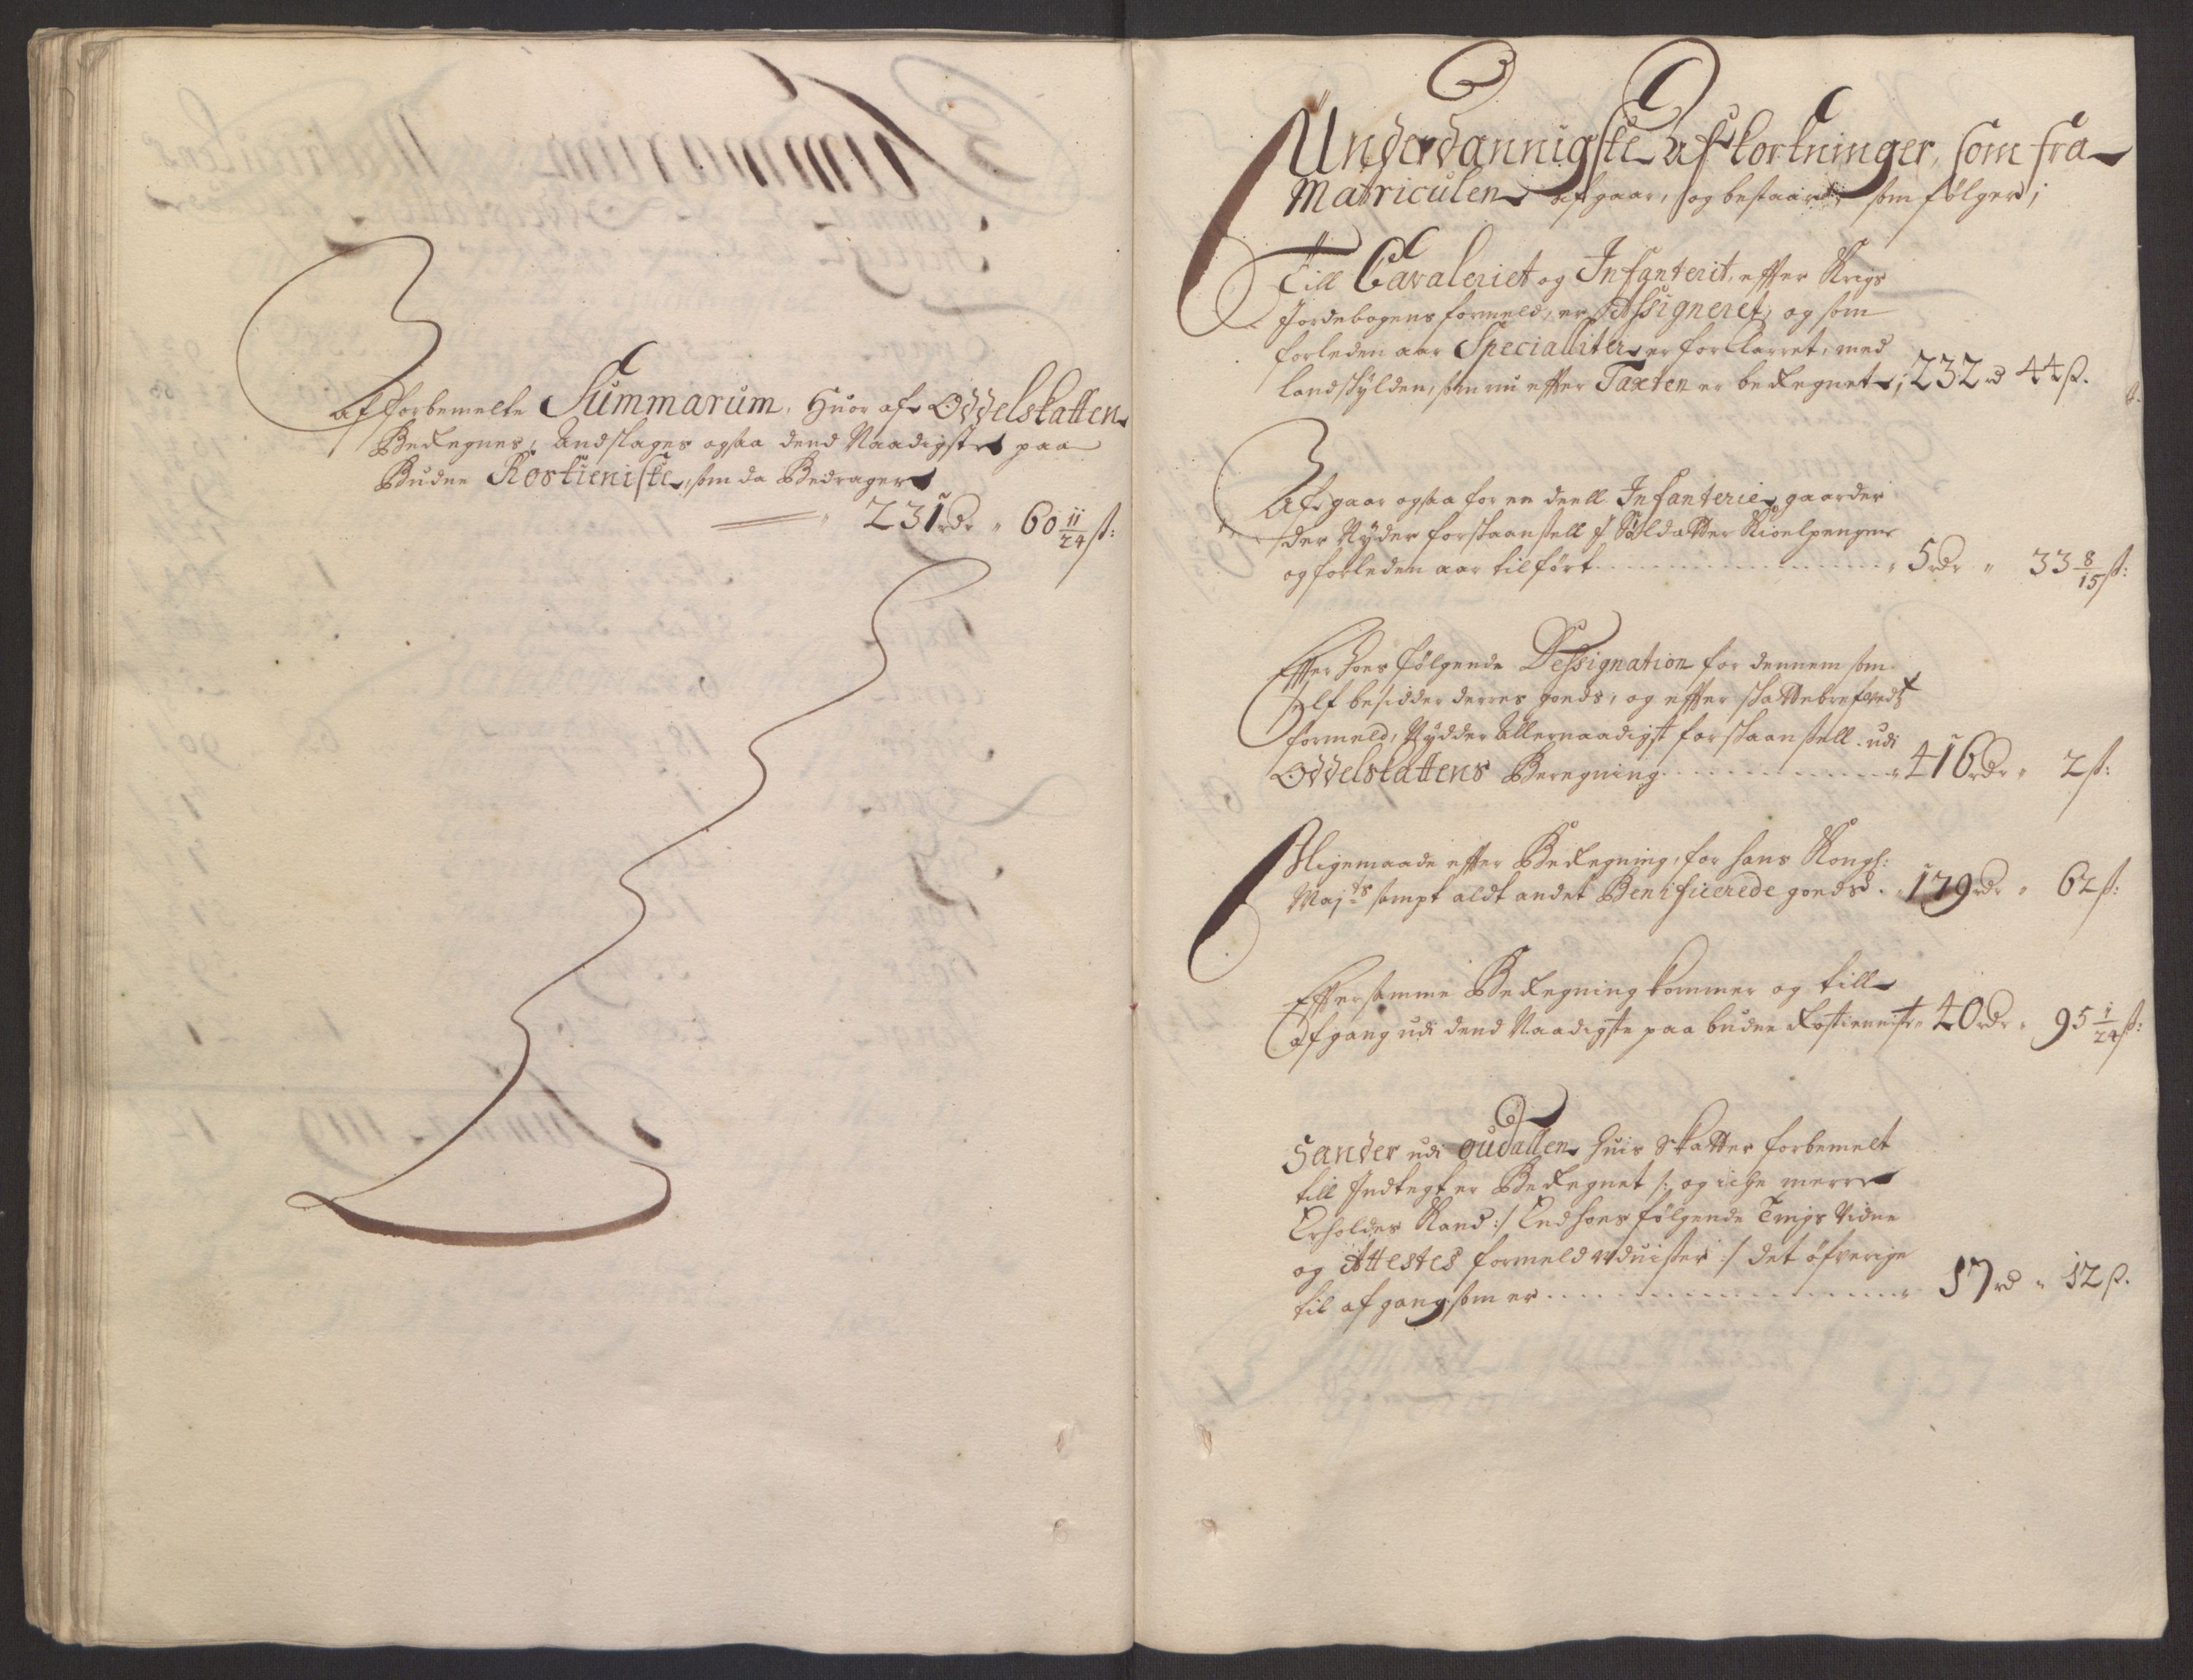 Af forbemelte Summarum, Huor af Oddelskatten
Beregnes, Andslages ogsaa dend Naadigste paa
Budne Rostieniste, som da Bedrager
231 rdr 60 11/24 ß:
Underdannigste Afkortninger, som fra
Matriculen afgaar, og bestaar som følger;
Till Cavaleriet og Infanterit, effter Krigs
Jordebogens formeld, er Assigneret, og som
forleden aar Specialliter er forklarret, med
landskylden, som nu effter Taxten er beregnet; 232 rd 44 ß.
Afgaar ogsaa for en deell Infanterie gaarder
der Nyder forskaansell f Soldatter Kioelpenger
og forleden aar tilført 5 rdr 33 8/15 ß:
Effter hoes følgende Dessignation for dennem som
self besidder derres goeds, og effter skattebrefwedt
formeld, Nydder Allernaadigst forskaansell udi
Oddelskattens Beregning 416 rdr 2 ß:
Ligemaade effter Beregning, for hans Kongl:
Maj:ts sampt aldt andet Benificerede goeds 179 rdr 62 ß:
Effter samme Beregning kommer og till
afgang udi dend Naadigste paa budne Rostienniste 40 rdr 95 1/24 ß:
Sander udi Oudallen, huis Skatter forbemelt
till Indtegt er Beregnet /: og iche merre
Erholdes Kand :/ End hoes følgende Tings Vidne
og Attestes formeld uduiser :/ det øfverige
til afgang som er 17 rd 12 ß.